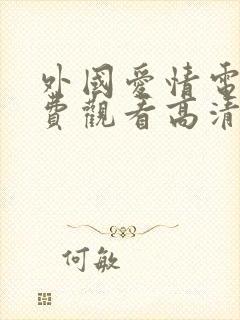 外國愛情電
費觀看高清
何敏